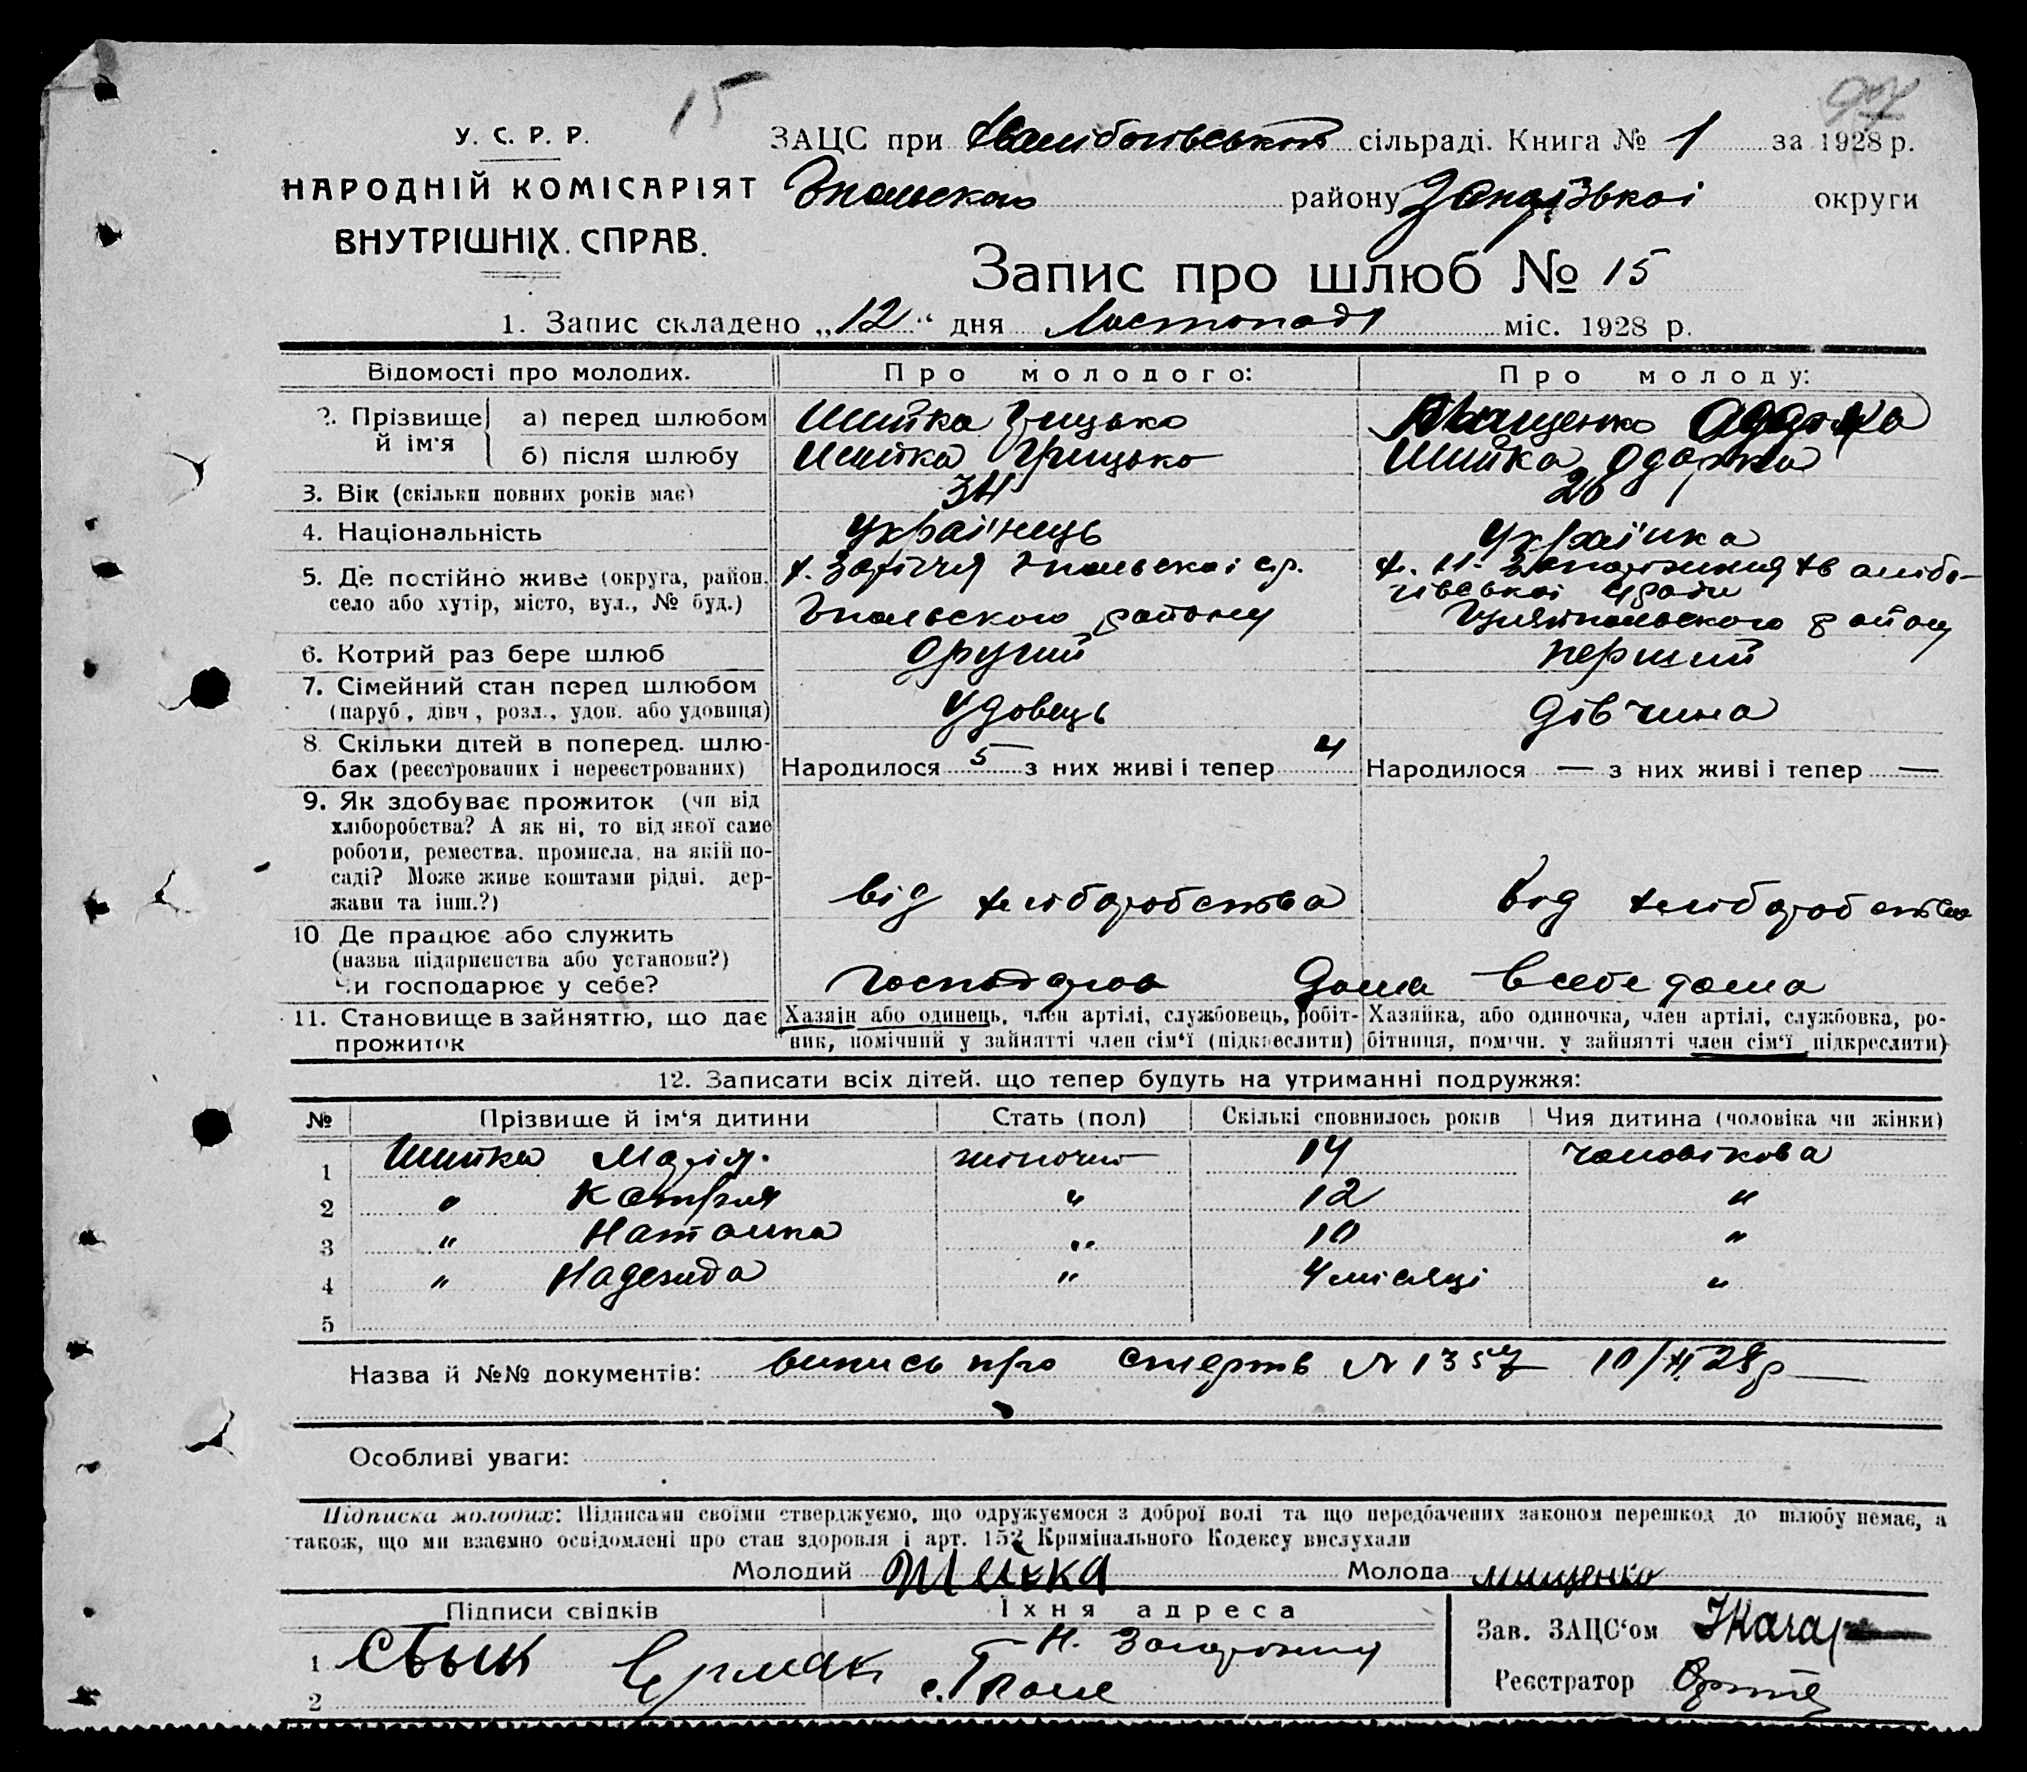 15
97
У. С. Р. Р.
НАРОДНІЙ КОМІСАРІЯТ
ВНУТРІШНІХ СПРАВ.
ЗАЦС при сільраді. Книга № 1 за 1928 р.
району Запорізької округи
Запис про шлюб № 15
1. Запис складено „12" дня Листопада міс. 1928 р.
Відомості про молодих. Про молодого: Про молоду:
2. Прізвище й ім'я а) перед шлюбом Шийка Грицько Одарка
б) після шлюбу Шийка Грицько Шийка Одарка
3. Вік (скільки повних років має) 34 26
4. Національність українець українка
5. Де постійно живе (округа, район,
село або хутір, місто, вул., № буд.)
району району
6. Котрий раз бере шлюб другий перший
7. Сімейний стан перед шлюбом
(паруб, дівч, розл., удов. або удовиця) удовець дівчина
8. Скільки дітей в поперед. шлю-
бах (реєстрованих і нереєстрованих) Народилося 5 з них живі і тепер 4 Народилося — з них живі і тепер —
9. Як здобуває прожиток (чи від
хліборобства? А як ні, то від якої саме
роботи, ремества, промисла, на якій по-
саді? Може живе коштами рідні, дер-
жави та інш.?) від хліборобства від хліборобства
10 Де працює або служить
(назва підприємства або установи?)
Чи господарює у себе? дома в себе дома
11. Становище в зайняттю, що дає
прожиток
Хазяїн або одинець, член артілі, службовець, робіт-
ник, помічний у зайнятті член сім'ї (підкреслити)
Хазяйка, або одиночка, член артілі, службовка, ро-
бітниця, помічн. у зайнятті член сім'ї підкреслити)
12. Записати всіх дітей. що тепер будуть на утриманні подружжя:
№ Прізвище й ім'я дитини Стать (пол) Скількі сповнилось років Чия дитина (чоловіка чи жінки)
1 Шийка Марія. жіноча 14 чоловікова
2 " Катря " 12 "
3 " Наталка " 10 "
4 " Надежда " 4 місяці "
5
Назва й №№ документів: випись про смерть № 1357 10/XI 28р
Особливі уваги:
Підписка молодих: Підписами своїми стверджуємо, що одружуємося з доброї волі та що передбачених законом перешкод до шлюбу немає, а
також, що ми взаємно освідомлені про стан здоровля і арт. 152 Кримінального Кодексу вислухали
Молодий Шийка Молода Мищенко
Підписи свідків Їхня адреса
Зав. ЗАЦС'ом
1 Єрмак
Реєстратор
2